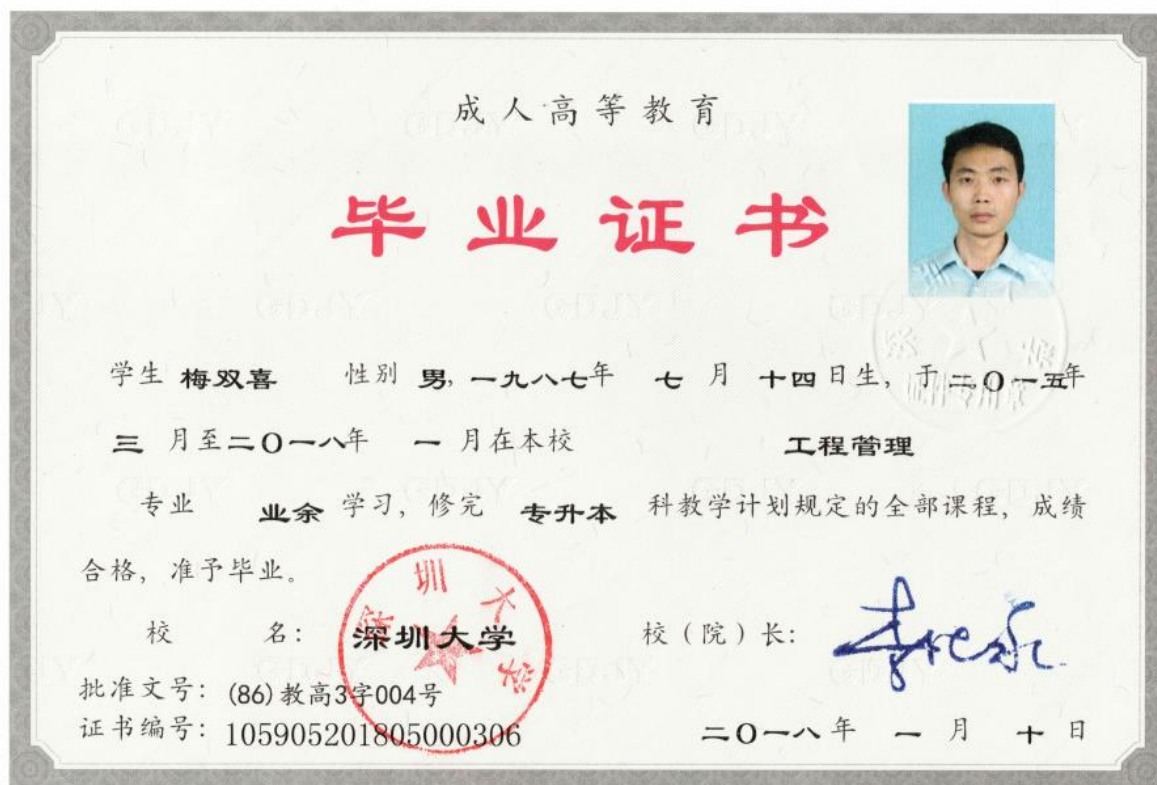 成人高等教育
毕业证书
学生 梅双喜 性别 男, 一九八七年 七 月 十四 日生, 于二〇一五年
三 月至二〇一八年 一 月在本校 工程管理
专业 业余 学习, 修完 专升本 科教学计划规定的全部课程, 成绩
合格, 准予毕业。
校 名: 深圳大学 校(院)长:
深圳大学
批准文号: (86)教高3字004号
证书编号: 105905201805000306
二〇一八年 一 月 十 日